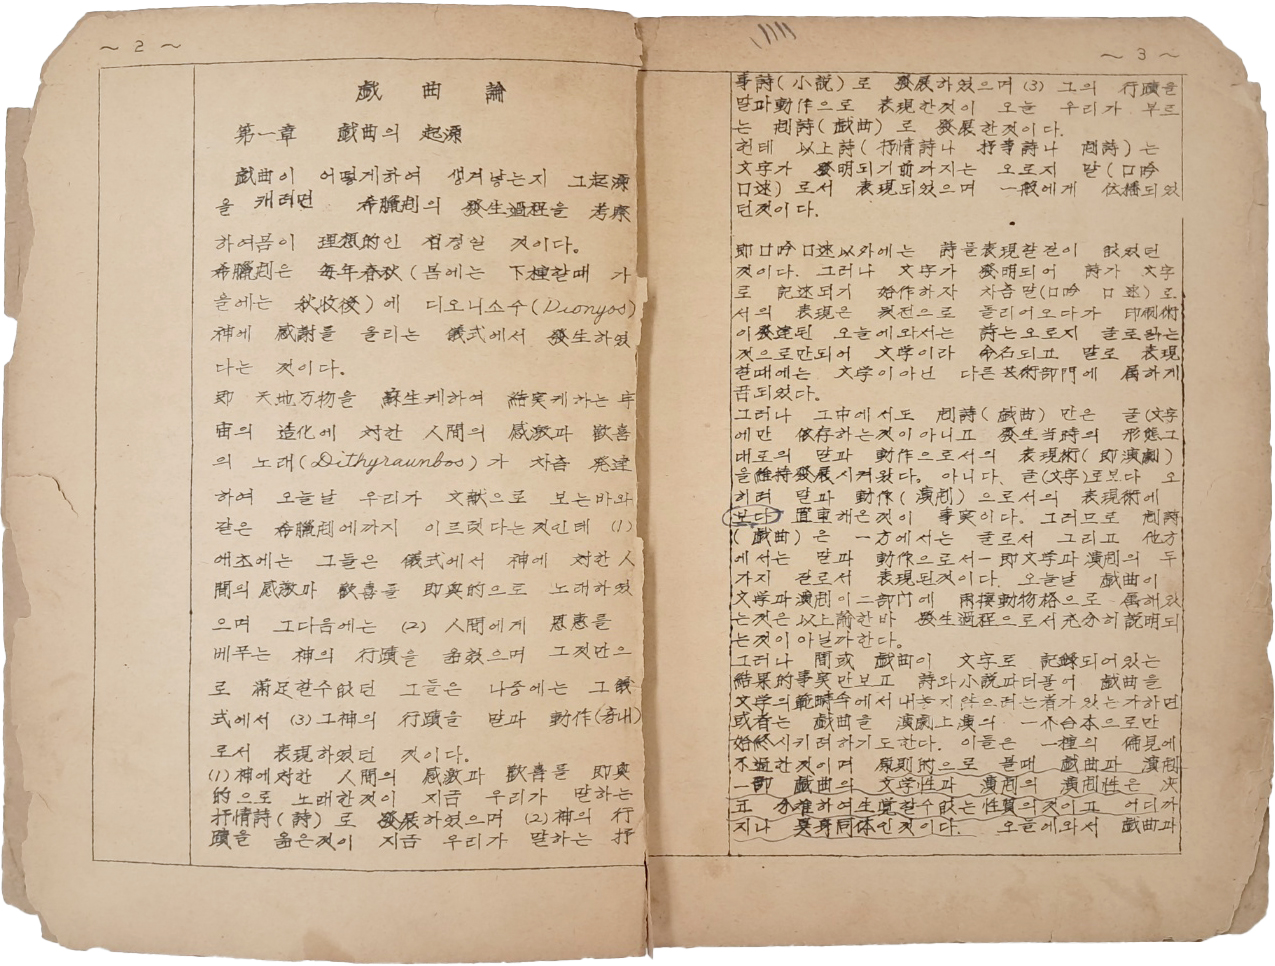 ~ 2 ~
戱曲論
第一章 戱曲의 起源
戱曲이 어떻게하여 생겨낳는지 그起源
을 캐려면 希臘劇의 發生過程을 考察
하여봄이 理想的인 첩정일 것이다.
希臘劇은 每年春秋(봄에는 下種할때 가
을에는 秋收後)에 디오니소수(Dionyos)
神에 感謝를 올리는 儀式에서 發生하였
다는 것이다.
即 天地万物을 蘇生케하여 結実케하는 宇
宙의 造化에 対한 人間의 感激과 歡喜
의 노래(Dithyraunbos)가 차츰 発達
하여 오늘날 우리가 文献으로 보는바와
같은 希臘劇에까지 이르렀다는것인데 (1)
애초에는 그들은 儀式에서 神에 対한人
間의感激과 歡喜를 即興的으로 노래하였
으며 그다음에는 (2) 人間에게 恩惠를
베푸는 神의 行蹟을 읊었으며 그것만으
로 滿足할수없던 그들은 나중에는 그儀
式에서 (3)그神의 行蹟을 말과 動作(흉내)
로서 表現하였던 것이다.
(1)神에対한 人間의 感激과 歡喜를 即興
的으로 노래한것이 지금 우리가 말하는
抒情詩(詩)로 發展하였으며 (2)神의 行
蹟을 읊은것이 지금 우리가 말하는 抒
~ 3 ~
事詩(小説)로 發展하였으며 (3) 그의 行蹟을
말과動作으로 表現한것이 오늘 우리가 부르
는 劇詩(戱曲)로 發展한것이다.
헌데 以上詩(抒情詩나 抒事詩나 劇詩)는
文字가 發明되기前까지는 오로지 말(口吟
口述)로서 表現되었으며 一般에게 伝播되었
던것이다.
即口吟口述以外에는 詩를表現할길이 없었던
것이다. 그러나 文字가 發明되어 詩가 文字
로 記述되기 始作하자 차츰말(口吟 口述)로
서의 表現은 뒷전으로 물리어오다가 印刷術
이發達된 오늘에와서는 詩는오로지 글로쓰는
것으로만되어 文学이라 命名되고 말로 表現
할때에는 文学이아닌 다른芸術部門에 属하게
끔되었다.
그러나 그中에서도 劇詩(戱曲) 만은 글(文字
에만 依存하는것이아니고 發生当時의 形態그
대로의 말과 動作으로서의 表現術(即演劇)
을維持發展시켜왔다. 아니다. 글(文字)로보다 오
히려 말과 動作(演劇)으로서의 表現術에
보다 置重해온것이 事実이다. 그러므로 劇詩
(戱曲)은 一方에서는 글로서 그리고 他方
에서는 말과 動作으로서一即文学과演劇의 두
가지 길로서 表現된것이다. 오늘날 戱曲이
文学과演劇이二部門에 兩棲動物格으로 属해있
는것은以上論한바 發生過程으로서充分히説明되
는것이아닐까한다.
그러나 間或 戱曲이 文字로 記録되어있는
結果的事実만보고 詩와小説과더불어 戱曲을
文学의範疇속에서내놓지않으려는者가있는가하면
或者는 戱曲을 演劇上演의 一介台本으로만
始終시키려하기도한다. 이들은 一種의 偏見에
不過한것이며 原則的으로 볼때 戱曲과 演劇
一即 戱曲의 文学性과 演劇의 演劇性은 決
코 分離하여生覚할수없는性質의것이고 어디까
지나 異身同体인것이다. 오늘에와서 戱曲과